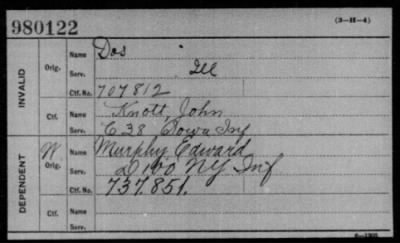 980122
(3-H-4)
INVALID
Orig.
Name Dos
Serv. Ill
Ctf. No. 707812
Ctf.
Name Knott, John
Serv. C 38 Iowa Inf
DEPENDENT
W
Orig.
Name Murphy Edward
Serv. D 160 NY Inf
Ctf. No. 737.851.
Ctf.
Name
Serv.